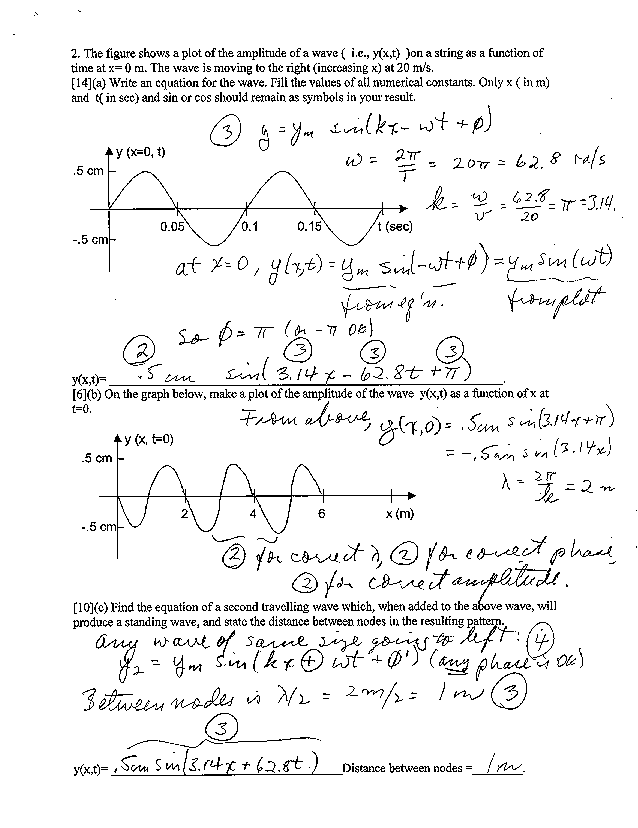 2. The figure shows a plot of the amplitude of a wave ( i.e., y(x,t) )on a string as a function of
time at x= 0 m. The wave is moving to the right (increasing x) at 20 m/s.
[14](a) Write an equation for the wave. Fill the values of all numerical constants. Only x ( in m)
and t( in sec) and sin or cos should remain as symbols in your result.
③ y = ym sin(kx - ωt + φ)
y (x=0, t)
ω = 2π/T = 20π = 62.8 rad/s
.5 cm
k = ω/v = 62.8/20 = π = 3.14.
0.05 0.1 0.15 t (sec)
-.5 cm
at x=0, y(x,t) = ym sin(-ωt+φ) = ym sin(ωt)
from eq'n. from plot
So φ = π (or -π OK)
② ③ ③ ③
y(x,t)= .5 cm sin( 3.14 x - 62.8t + π)
[6](b) On the graph below, make a plot of the amplitude of the wave y(x,t) as a function of x at
t=0.
From above, y(x,0) = .5cm sin(3.14x+π)
y (x, t=0)
= -.5cm sin(3.14x)
.5 cm
λ = 2π/k = 2 m
2 4 6 x (m)
-.5 cm
② for correct λ, ② for correct phase,
② for correct amplitude.
[10](c) Find the equation of a second travelling wave which, when added to the above wave, will
produce a standing wave, and state the distance between nodes in the resulting pattern.
any wave of same size going to left: ④
y2 = ym sin(kx ⊕ ωt + φ') (any phase is OK)
Between nodes is λ/2 = 2m/2 = 1 m ③
③
y(x,t)= .5cm sin(3.14x + 62.8t ) Distance between nodes = 1m.